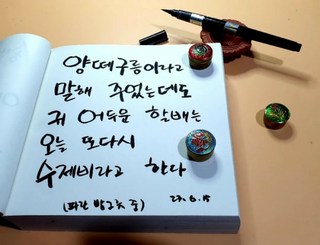 양떼구름이라고
말해 주었는데도
저 어두운 할배는
오늘 또다시
수제비라고 한다
(파란 밥그릇 중) 23. 6. 15